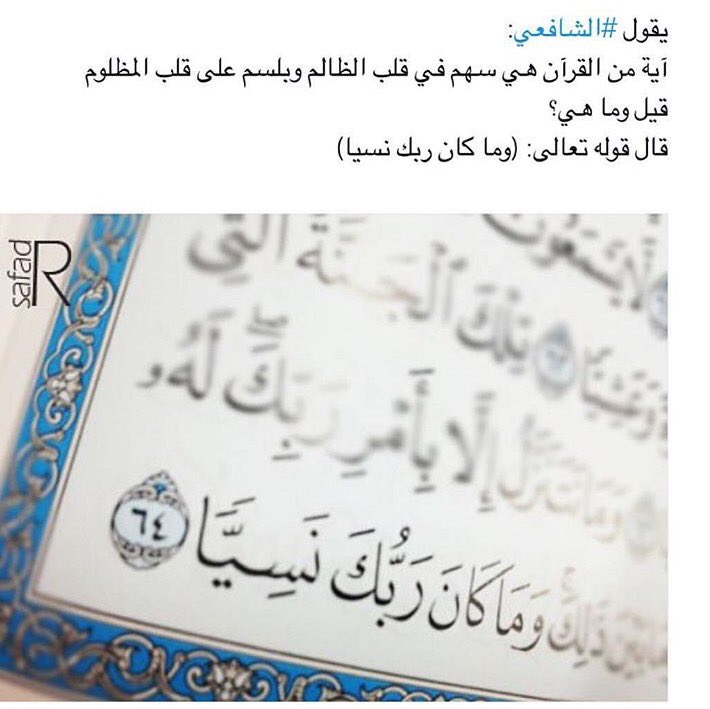 يقول #الشافعي:
آية من القرآن هي سهم في قلب الظالم وبلسم على قلب المظلوم
قيل وما هي؟
قال قوله تعالى: (وما كان ربك نسيا)
safad R
لَّا يَسْمَعُونَ
وَعَشِيًّا ٦٢ تِلْكَ ٱلْجَنَّةُ ٱلَّتِى
وَمَا نَتَنَزَّلُ إِلَّا بِأَمْرِ رَبِّكَ لَهُۥ
ذَٰلِكَ وَمَا كَانَ رَبُّكَ نَسِيًّا ٦٤